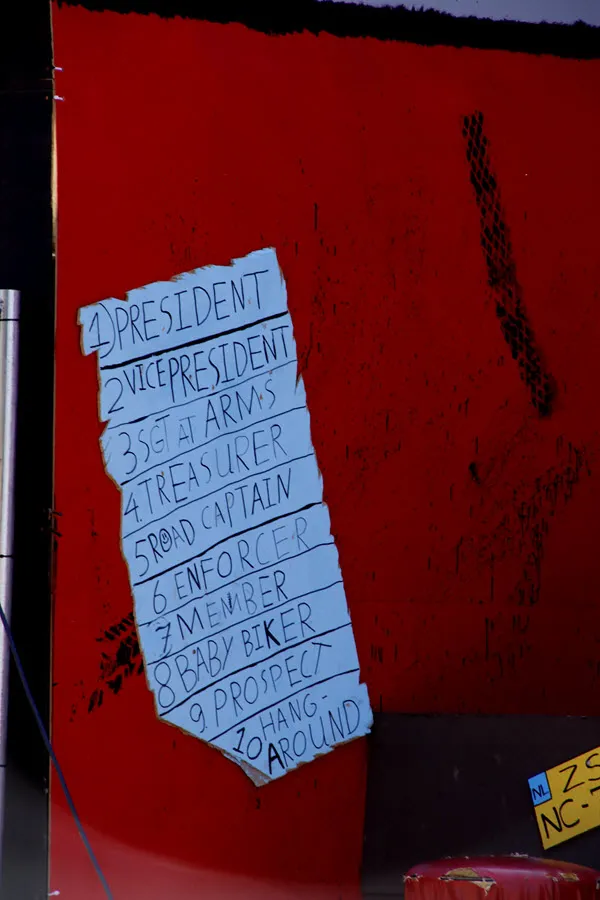 1)PRESIDENT
2 VICE PRESIDENT
3 SGT AT ARMS
4.TREASURER
5 ROAD CAPTAIN
6 ENFORCER
7 MEMBER
8 BABY BIKER
9. PROSPECT
10 HANG-
AROUND
NL
ZS
NC-